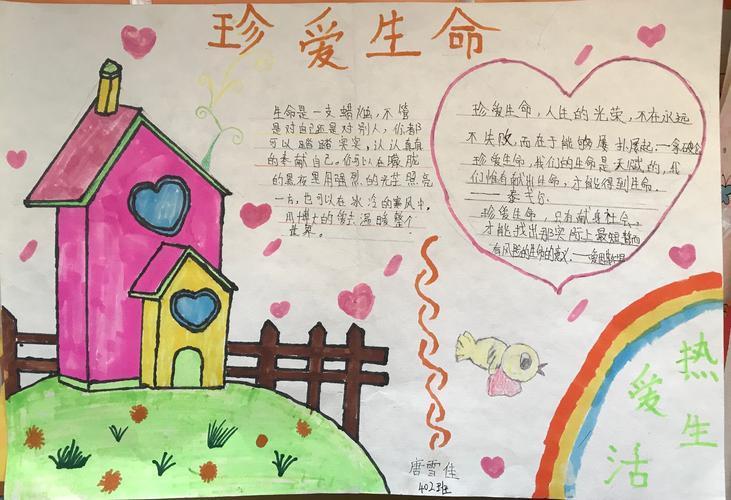 珍爱生命
生命是一支蜡烛,不管
是对自己还是对别人,你都
可以踏踏实实,认认真真
的奉献自己。你可以在朦胧
的黑夜里用强烈的光芒照亮
一方,也可以在冰冷的寒风中,
用博大的爱去温暖整个
世界。
珍爱生命,人生的光荣,不在永远
不失败,而在于能够屡扑屡起。——拿破仑
珍爱生命,我们的生命是天赋的,我
们惟有献出生命,才能得到生命。
泰戈尔
珍爱生命,只有献身社会,
才能找出那实际上是短暂而
有风险的生命的意义。——爱因斯坦
热爱生活
唐雪佳
402班